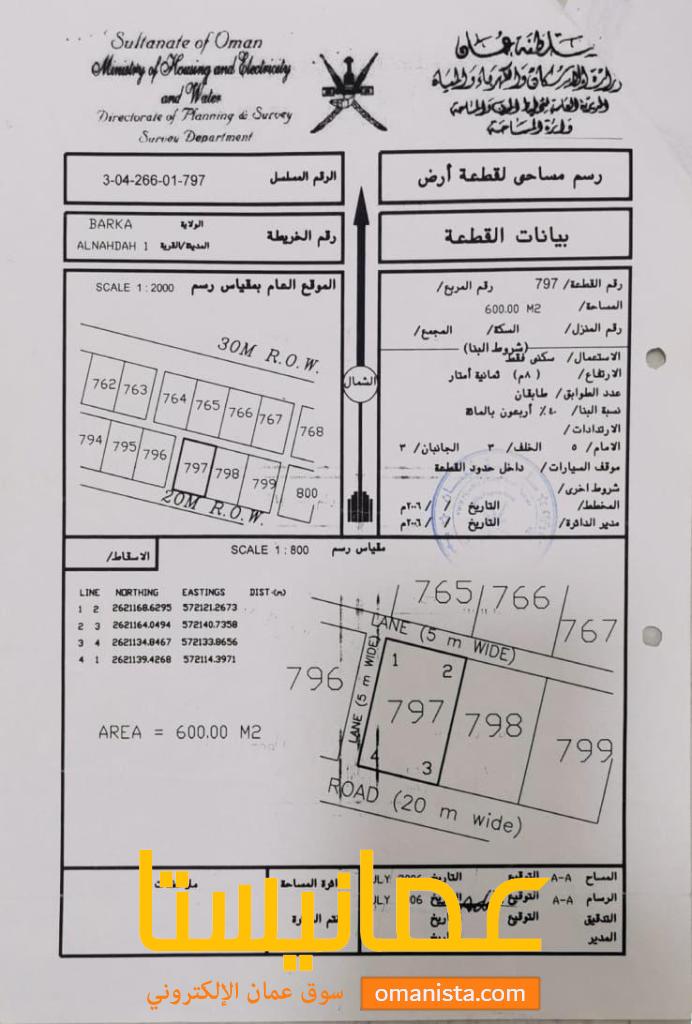 Sultanate of Oman
Ministry of Housing and Electricity
and Water
Directorate of Planning & Survey
Survey Department
سلطنة عمان
وزارة الإسكان والكهرباء والمياه
المديرية العامة للتخطيط والمساحة
دائرة المساحة
رسم مساحي لقطعة أرض
الرقم المسلسل 3-04-266-01-797
بيانات القطعة
رقم الخريطة
الولاية BARKA
المدينة/القرية ALNAHDAH 1
رقم القطعة/ 797 رقم المربع/
المساحة/ 600.00 M2
رقم المنزل/ السكة/ المجمع/
(شروط البنا)
الاستعمال/ سكنى فقط
الارتفاع/ (٨م) ثمانية أمتار
عدد الطوابق/ طابقان
نسبة البنا/ ٤٠٪ أربعون بالمائة
الارتدادات/
الامام/ ٥ الخلف/ ٣ الجانبان/ ٣
موقف السيارات/ داخل حدود القطعة
شروط اخرى/
المخطط/ التاريخ / / ٢٠٠٦م
مدير الدائرة/ التاريخ / / ٢٠٠٦م
الموقع العام بمقياس رسم SCALE 1 : 2000
30M R.O.W.
762 763 764 765 766 767 768
794 795 796 797 798 799 800
20M R.O.W.
الشمال
الاسقاط/
SCALE 1 : 800 مقياس رسم
LINE NORTHING EASTINGS DIST·(m)
1 2 2621168.6295 572121.2673
2 3 2621164.0494 572140.7358
3 4 2621134.8467 572133.8656
4 1 2621139.4268 572114.3971
AREA = 600.00 M2
765 766 767
LANE (5 m WIDE)
LANE (5 m WIDE)
796 797 798 799
1 2
4 3
ROAD (20 m wide)
المساح A-A التوقيع التاريخ
الرسام A-A التوقيع
التدقيق التوقيع
المدير
عمانيستا
سوق عمان الإلكتروني
omanista.com